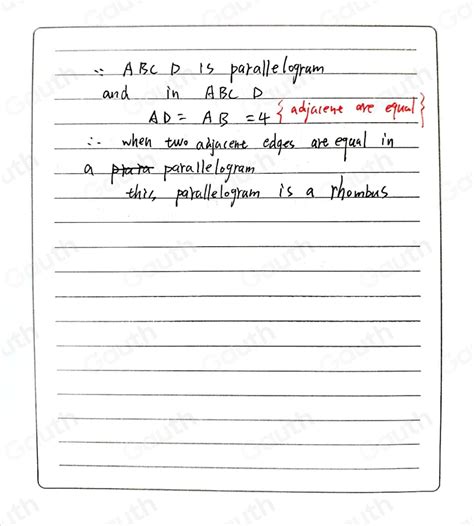 ∵ ABC D is parallelogram
and in ABC D
AD = AB = 4 { adjacent are equal }
∴ when two adjacent edges are equal in
a parallelogram
this parallelogram is a rhombus
Gauth